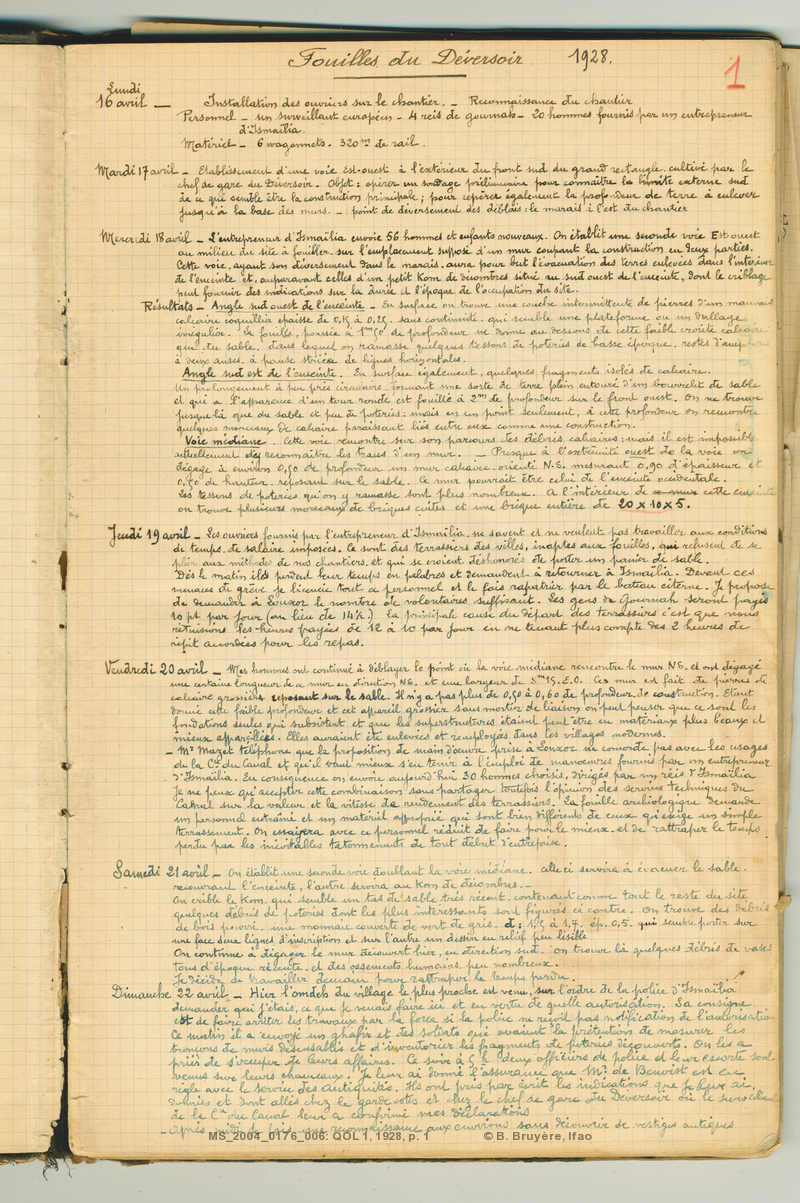 Fouilles du Déversoir 1928.
1
Lundi
16 avril — Installation des ouvriers sur le chantier. — Reconnaissance du chantier
Personnel — un surveillant européen - 4 reis de gournah - 20 hommes fournis par un entrepreneur
d'Ismaïlia.
Matériel — 6 wagonnets. 320m de rail.
Mardi 17 avril — Etablissement d'une voie Est-ouest à l'extérieur du front sud du grand rectangle cultivé par le
chef de gare du Déversoir. Objet : opérer un sondage préliminaire pour connaître la limite externe sud
de ce qui semble être la construction principale; pour repérer également la profondeur de terre à enlever
jusqu'à la base des murs. — point de déversement des déblais : le marais à l'est du chantier
Mercredi 18 avril — L'entrepreneur d'Ismaïlia envoie 56 hommes et enfants nouveaux. On établit une seconde voie Est ouest
au milieu du site à fouiller. sur l'emplacement supposé d'un mur coupant la construction en deux parties.
Cette voie, ayant son déversement dans le marais, aura pour but l'évacuation des terres enlevées dans l'intérieur
de l'enceinte et, auparavant celles d'un petit Kom de décombres situé au sud ouest de l'enceinte, dont le criblage
peut fournir des indications sur la durée et l'époque de l'occupation du site.
Résultats - Angle sud ouest de l'enceinte - En surface on trouve une couche intermittente de pierres d'un mauvais
calcaire coquillier épaisse de 0,15 à 0,25. sans continuité. qui semble une plateforme ou un dallage
irrégulier. La fouille, poussée à 1m50 de profondeur ne donne au dessous de cette faible croûte calcaire
que du sable, dans lequel on ramasse quelques tessons de poteries de basse époque. restes d'amphores
à deux anses. à panse striée de lignes horizontales.
Angle sud est de l'enceinte. En surface également, quelques fragments isolés de calcaire.
Un prolongement à peu près circulaire formant une sorte de terre plein entouré d'un bourrelet de sable
et qui a l'apparence d'un tour ronde est fouillé à 2m de profondeur sur le front ouest. On ne trouve
jusque là que du sable et peu de poteries : mais en un point seulement, à cette profondeur on rencontre
quelques morceaux de calcaire paraissant liés entre eux comme une construction.
Voie médiane. Cette voie rencontre sur son parcours des débris calcaires : mais il est impossible
actuellement d'y reconnaître les traces d'un mur. — Presque à l'extrémité ouest de la voie on
dégage à environ 0,50 de profondeur un mur calcaire. orienté N.S. mesurant 0,90 d'épaisseur et
0,50 de hauteur. reposant sur le sable. Ce mur pourrait être celui de l'enceinte occidentale.
Les tessons de poteries qu'on y ramasse sont plus nombreux. A l'intérieur de cette enceinte
on trouve plusieurs morceaux de briques cuites et une brique entière de 20 x 10 x 5.
Jeudi 19 avril — Les ouvriers fournis par l'entrepreneur d'Ismaïlia. ne savent et ne veulent pas travailler aux conditions
de temps, de salaire imposées. Ce sont des terrassiers des villes, inaptes aux fouilles, qui refusent de se
plier aux méthodes de nos chantiers, et qui se croient déshonorés de porter un panier de sable.
Dès le matin ils perdent leur temps en palabres et demandent à retourner à Ismaïlia. Devant ces
menaces de grève je licencie tout ce personnel et le fais rapatrier par le bateau citerne. Je propose
de demander à Louxor le nombre de volontaires suffisant. Les gens de Gournah seront payés
10 pt par jour (au lieu de 14½.) La principale cause du départ des terrassiers c'est que nous
réduisons les heures payées de 12 à 10 par jour en ne tenant plus compte des 2 heures de
répit accordées pour les repas.
Vendredi 20 avril — Mes hommes ont continué à déblayer le point où la voie médiane rencontre le mur NS. et ont dégagé
une certaine longueur de ce mur en direction NS. et une largeur de E.O. Ce mur est fait de pierres de
calcaire grossier reposant sur le sable. Il n'y a pas plus de 0,50 à 0,60 de profondeur de construction. Etant
donné cette faible profondeur et cet appareil grossier sans mortier de liaison on peut penser que ce sont les
fondations seules qui subsistent et que les superstructures étaient peut être en matériaux plus beaux et
mieux appareillés. Elles auraient été enlevées et remployées dans les villages modernes.
— Mr Mazet téléphone que la proposition de main d'oeuvre prise à Louxor ne concorde pas avec les usages
de la Cie du Canal et qu'il vaut mieux s'en tenir à l'emploi de manoeuvres fournis par un entrepreneur
d'Ismaïlia. En conséquence on envoie aujourd'hui 30 hommes choisis, dirigés par un réis d'Ismaïlia
Je ne peux qu'accepter cette combinaison sans partager toutefois l'opinion des services techniques du
Canal sur la valeur et la vitesse de rendement des terrassiers. La fouille archéologique demande
un personnel entraîné et un matériel approprié qui sont bien différents de ceux qu'exige un simple
terrassement. On essaiera avec ce personnel réduit de faire pour le mieux. et de rattraper le temps
perdu par les inévitables tatonnements de tout début d'entreprise.
Samedi 21 avril — On établit une seconde voie doublant la voie médiane. celle ci servira à évacuer le sable.
recouvrant l'enceinte, l'autre servira au Kom de décombres. —
On crible le Kom. qui semble un tas de sable très récent, contenant comme tout le reste du site
quelques débris de poteries dont les plus intéressants sont figurés ci contre. On trouve des débris
de bois pourri. une monnaie couverte de vert de gris. d: 1,5 à 1,7. ép. 0,5. qui semble porter sur
une face deux lignes d'inscription et sur l'autre un dessin en relief peu lisible
On continue à dégager le mur découvert hier, en direction sud. On trouve là quelques débris de vases
tous d'époque récente. et des ossements humains. peu nombreux.
Je décide de travailler demain pour rattraper le temps perdu.
Dimanche 22 avril. — Hier l'omdeh du village le plus proche est venu, sur l'ordre de la police d'Ismaïlia
demander qui j'étais, ce que je venais faire ici et en vertu de quelle autorisation. Sa consigne
est de faire arrêter les travaux par la force si la police ne reçoit pas notification de l'autorisation
Ce matin il a envoyé un ghafir et des soldats qui avaient la prétention de mesurer les
tronçons de murs désensablés et d'inventorier les fragments de poteries découverts. On les a
priés de s'occuper de leurs affaires. Ce soir à 5 h deux officiers de police et leur escorte sont
venus sur leurs chameaux. Je leur ai donné l'assurance que Mr. de Benoist est en
règle avec le service des Antiquités. Ils ont pris par écrit les indications que je leur ai
données et sont allés chez le garde cotes et chez le chef de gare du Déversoir où le surveillant
de la Cie du Canal leur a confirmé mes déclarations
— Après midi je fais une reconnaissance aux environs sans découvrir de vestiges antiques
MS_2004_0176_006: QOL 1, 1928, p. 1 © B. Bruyère, Ifao